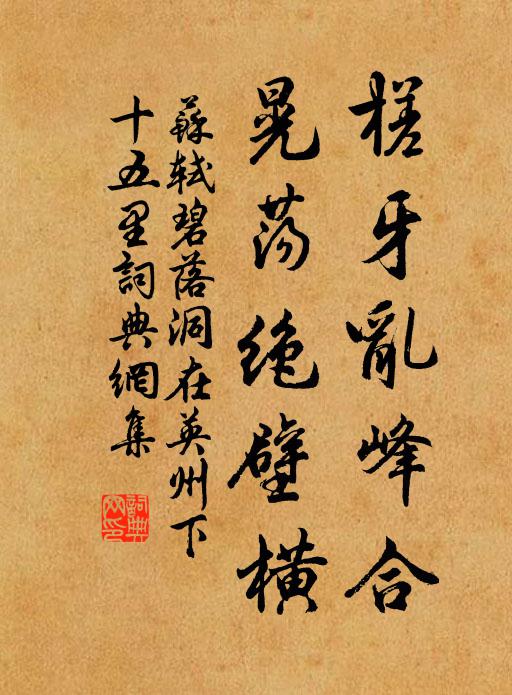 槎牙亂峰合
晃蕩絶壁橫
蘇軾碧落洞在英州下
十五里詞典網集
詞典
网印